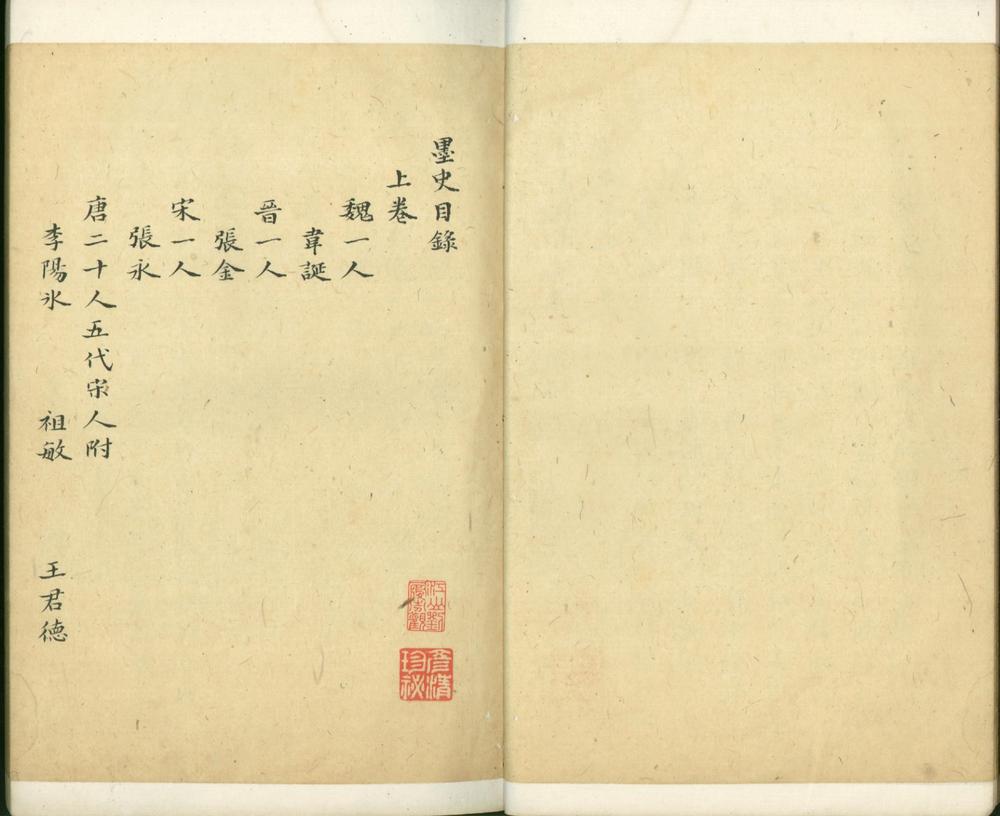 墨史目錄
上卷
魏一人
韋誕
晉一人
張金
宋一人
張永
唐二十人五代宋人附
李陽氷 祖敏 王君德
彥清珍祕